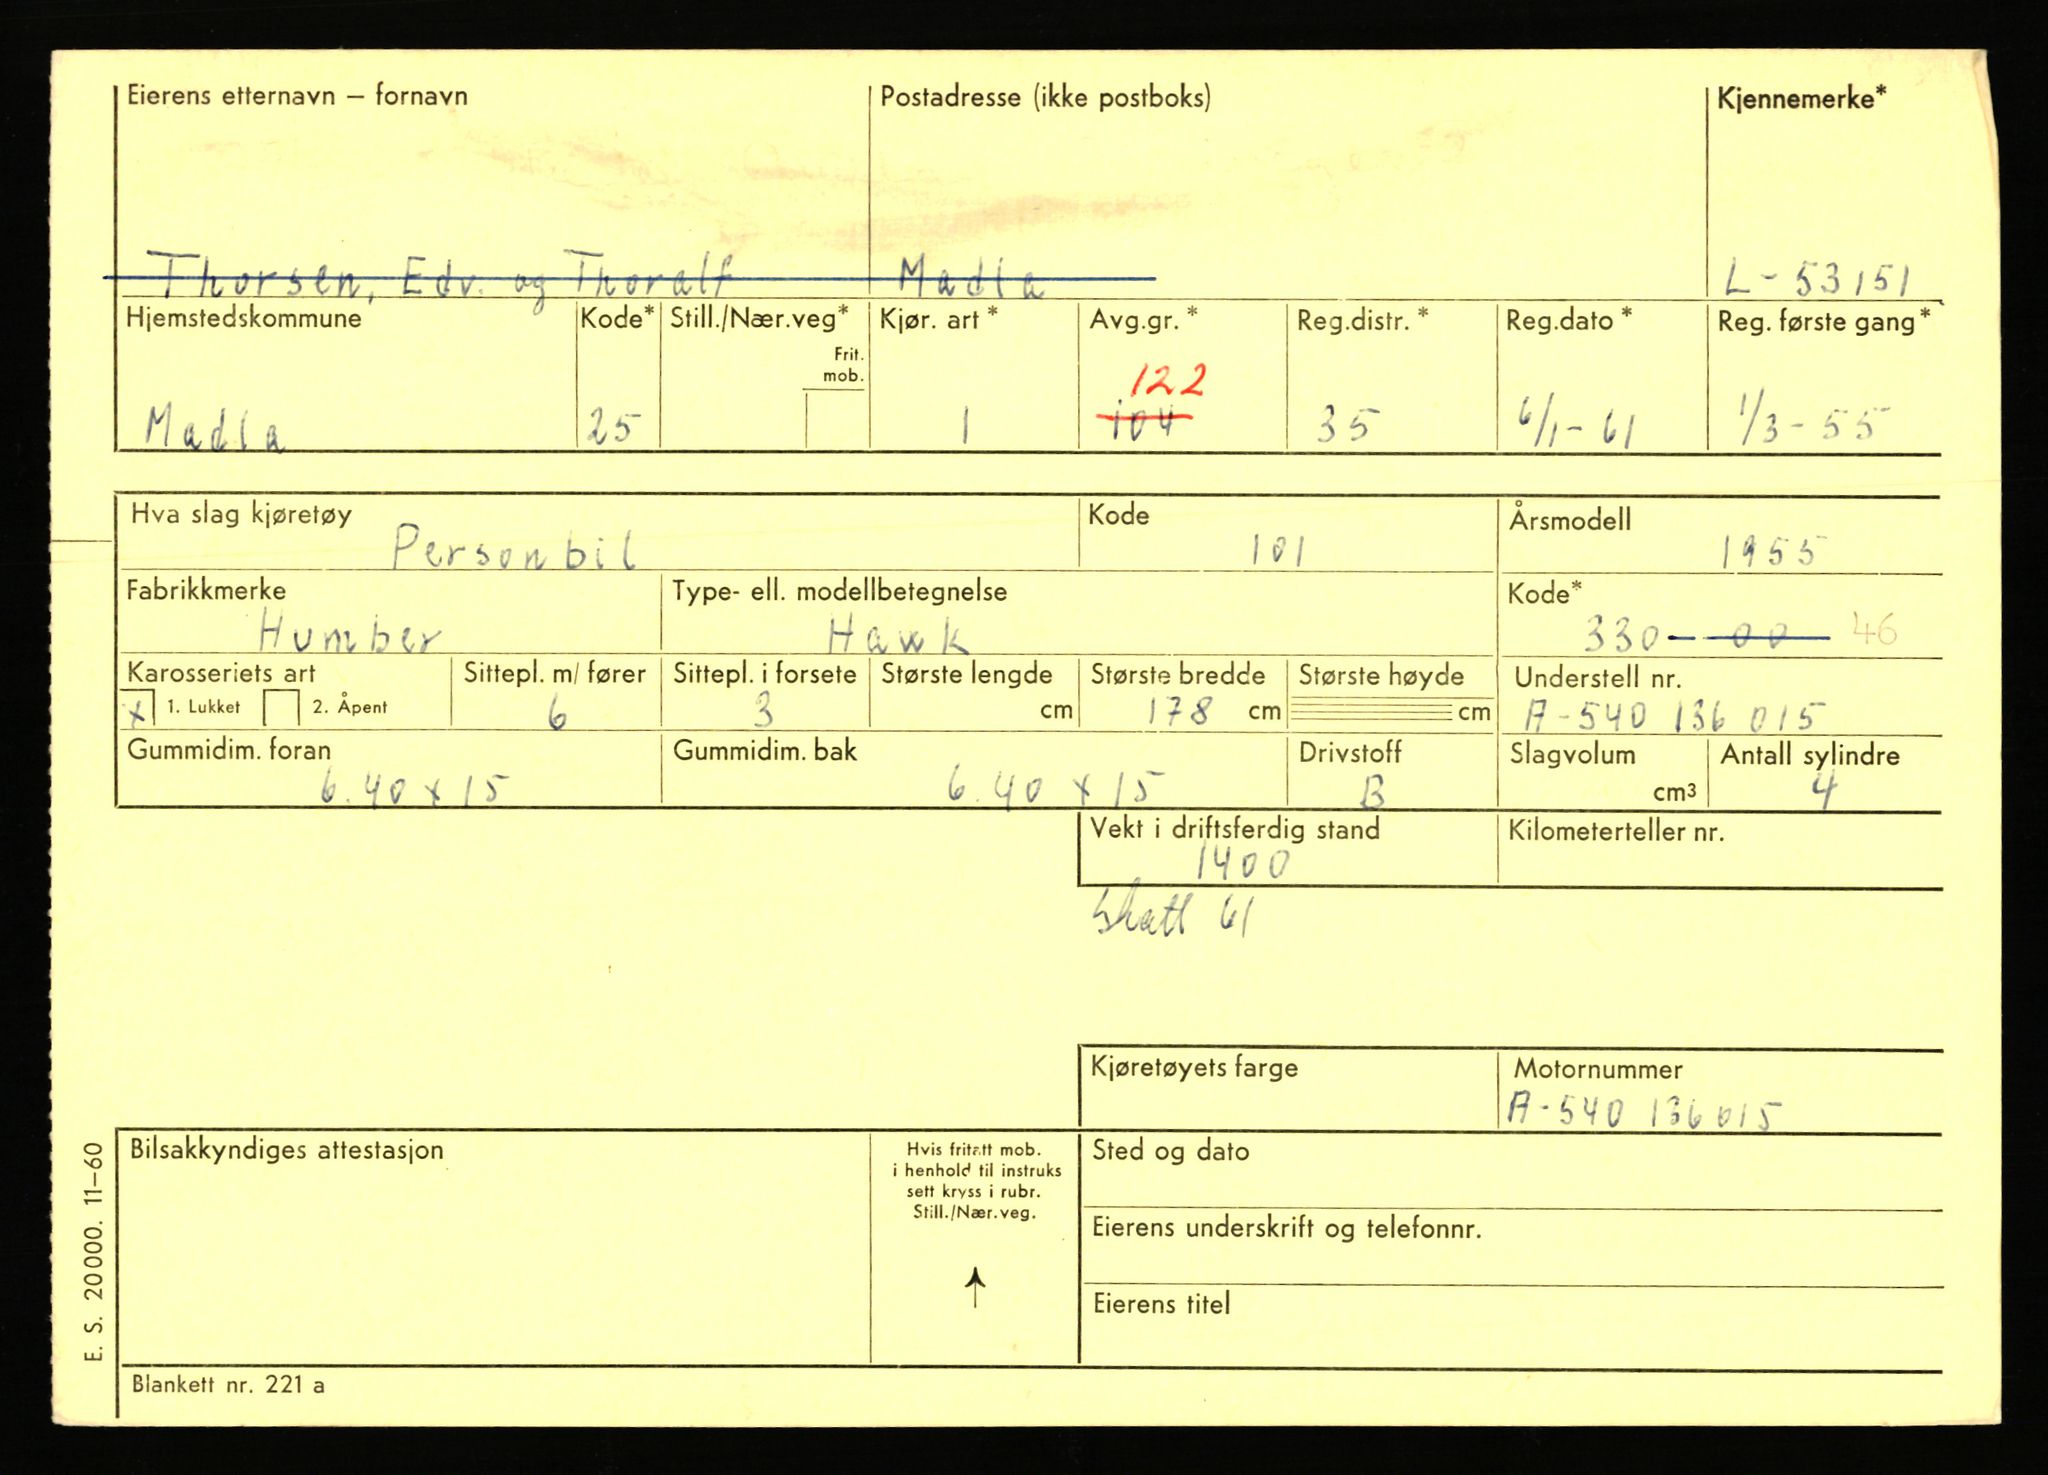 Eierens etternavn – fornavn Postadresse (ikke postboks) Kjennemerke*
Thorsen, Edv. og Thoralf Madla L-53151
Hjemstedskommune Kode* Still./Nær.veg* Kjør. art * Avg.gr. * Reg.distr. * Reg.dato * Reg. første gang*
Frit.
mob.
122
Madla 25 1 104 35 6/1-61 1/3-55
Hva slag kjøretøy Kode Årsmodell
Personbil 101 1955
Fabrikkmerke Type- ell. modellbetegnelse Kode*
Humber Hawk 330-00 46
Karosseriets art Sittepl. m/ fører Sittepl. i forsete Største lengde Største bredde Største høyde Understell nr.
x 1. Lukket 2. Åpent 6 3 cm 178 cm cm A-540 136 015
Gummidim. foran Gummidim. bak Drivstoff Slagvolum Antall sylindre
6.40 x 15 6.40 x 15 B cm3 4
Vekt i driftsferdig stand Kilometerteller nr.
1400
Skatt 61
Kjøretøyets farge Motornummer
A-540 136015
Bilsakkyndiges attestasjon Hvis fritatt mob. Sted og dato
i henhold til instruks
sett kryss i rubr.
Still./Nær.veg.
Eierens underskrift og telefonnr.
Eierens titel
E. S. 20000. 11–60
Blankett nr. 221 a